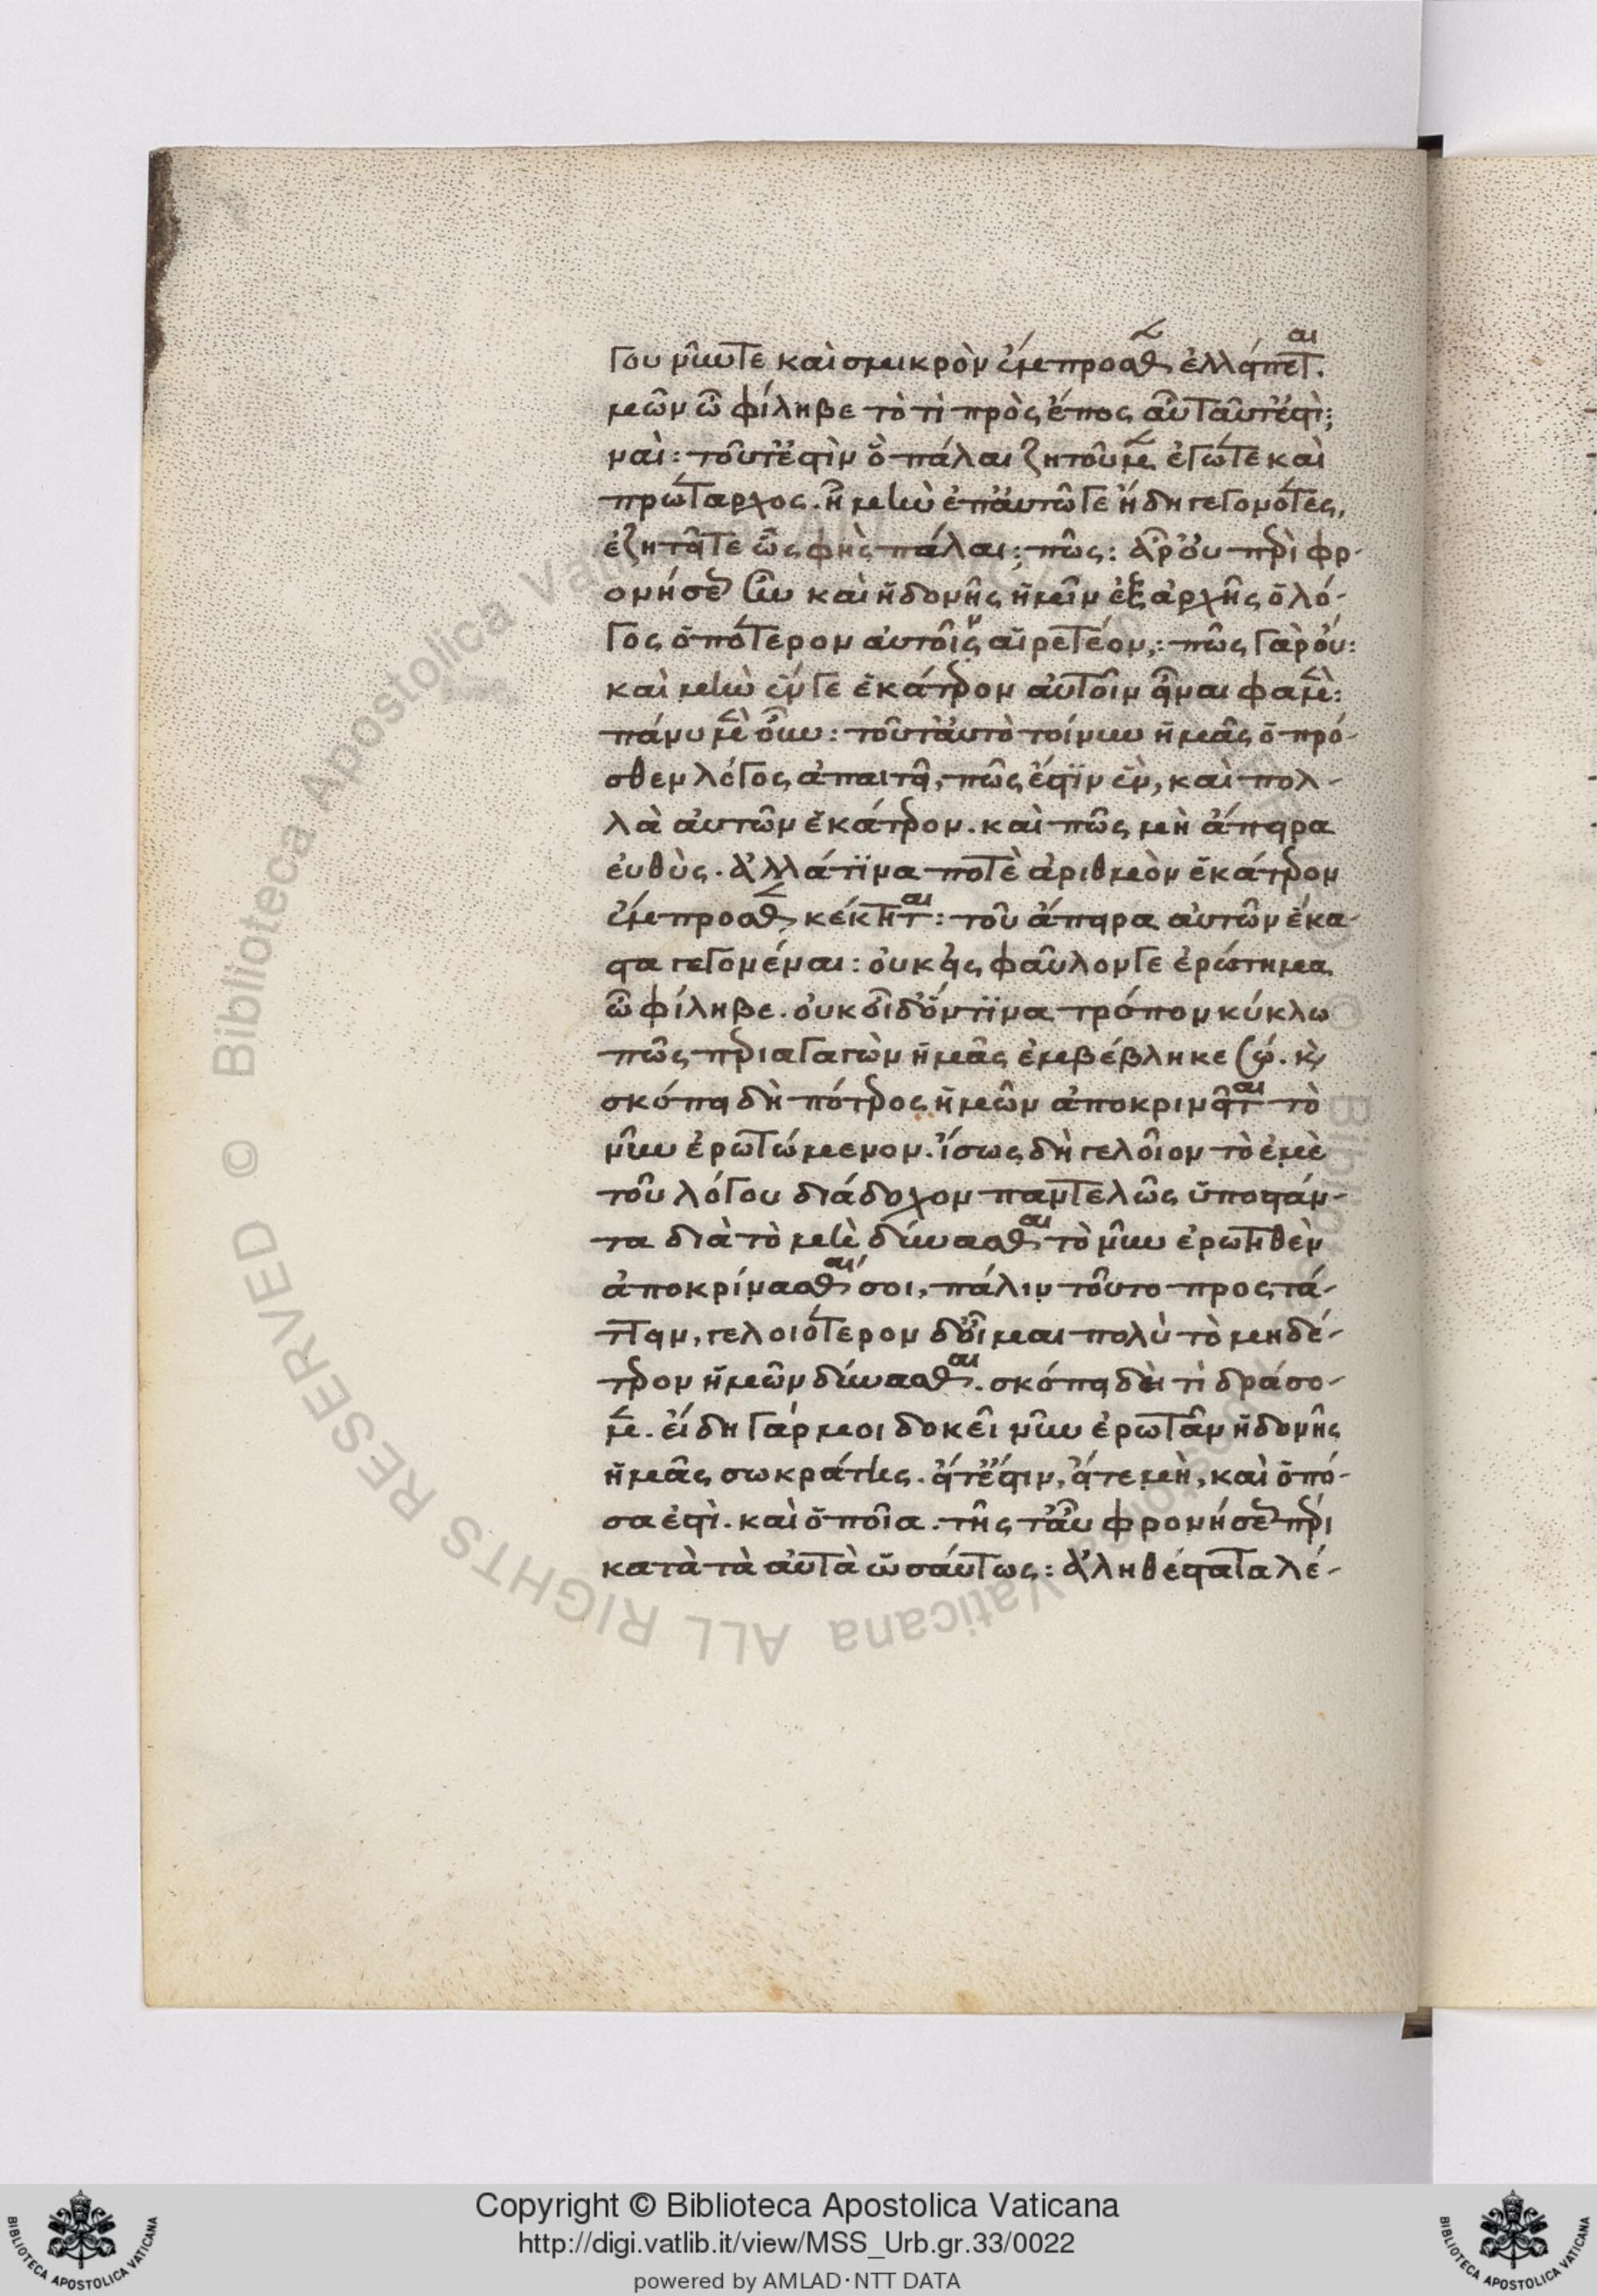 γου νῦν τε καὶ σμικρὸν ἔμπροσθεν ἐλλείπεται.
μῶν ὦ φίληβε τὸ τί πρὸς ἔπος αὖ ταῦτ' ἐστί;
ναί: τοῦτ' ἔστὶν ὃ πάλαι ζητοῦμεν ἐγώ τε καὶ
πρώταρχος. ἦ μὴν ἐπ' αὐτῶ γε ἤδη γεγονότες,
ἐζητεῖτε ὡς φὴς πάλαι; πῶς: ἆρ' οὐ περὶ φρ-
ονήσεως ἦν καὶ ἡδονῆς ἡμῖν ἐξ ἀρχῆς ὁ λό-
γος ὁπότερον αὐτοῖν αἱρετέον: πῶς γὰρ οὔ:
καὶ μὴν ἕν γε ἑκάτερον αὐτοῖν εἶναι φαμὲν:
πάνυ μὲν οὖν: τοῦτ' αὐτὸ τοίνυν ἡμᾶς ὁ πρό-
σθεν λόγος ἀπαιτεῖ, πῶς ἔστιν ἓν, καὶ πολ-
λὰ αὐτῶν ἑκάτερον. καὶ πῶς μὴ ἄπειρα
εὐθὺς. ἀλλά τινα ποτὲ ἀριθμὸν ἑκάτερον
ἔμπροσθεν κέκτηται: τοῦ ἄπειρα αὐτῶν ἕκα-
στα γεγονέναι: οὐκ εἰς φαῦλον γε ἐρώτημα
ὦ φίληβε. οὐκ οἶδ' ὅντινα τρόπον κύκλω
πως περιαγαγὼν ἡμᾶς ἐμβέβληκε σώ. κὶ
σκόπει δὴ πότερος ἡμῶν ἀποκρινεῖται τὸ
νῦν ἐρωτώμενον. ἴσως δὴ γελοῖον τὸ ἐμὲ
τοῦ λόγου διάδοχον παντελῶς ὑποστάν-
τα διὰ τὸ μὴ δύνασθαι τὸ νῦν ἐρωτηθὲν
ἀποκρίνασθαι σοι, πάλιν τοῦτο προςτά-
ττειν, γελοιότερον δ' οἶμαι πολὺ τὸ μηδέ-
τερον ἡμῶν δύνασθαι. σκόπει δὲ τί δράσο-
μεν. εἴδη γάρ μοι δοκεῖ νῦν ἐρωτᾶν ἡδονῆς
ἡμᾶς σωκράτης. εἴτ' ἔστιν, εἴτε μὴ, καὶ ὁπό-
σα ἐστὶ. καὶ ὁποῖα. τῆς τ' αὖ φρονήσεως περὶ
κατὰ τὰ αὐτὰ ὡσαύτως: ἀληθέστατα λέ-
Copyright © Biblioteca Apostolica Vaticana
http://digi.vatlib.it/view/MSS_Urb.gr.33/0022
powered by AMLAD·NTT DATA